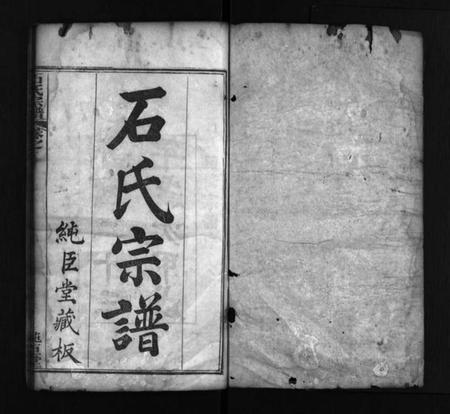 石氏宗譜
純臣堂藏板